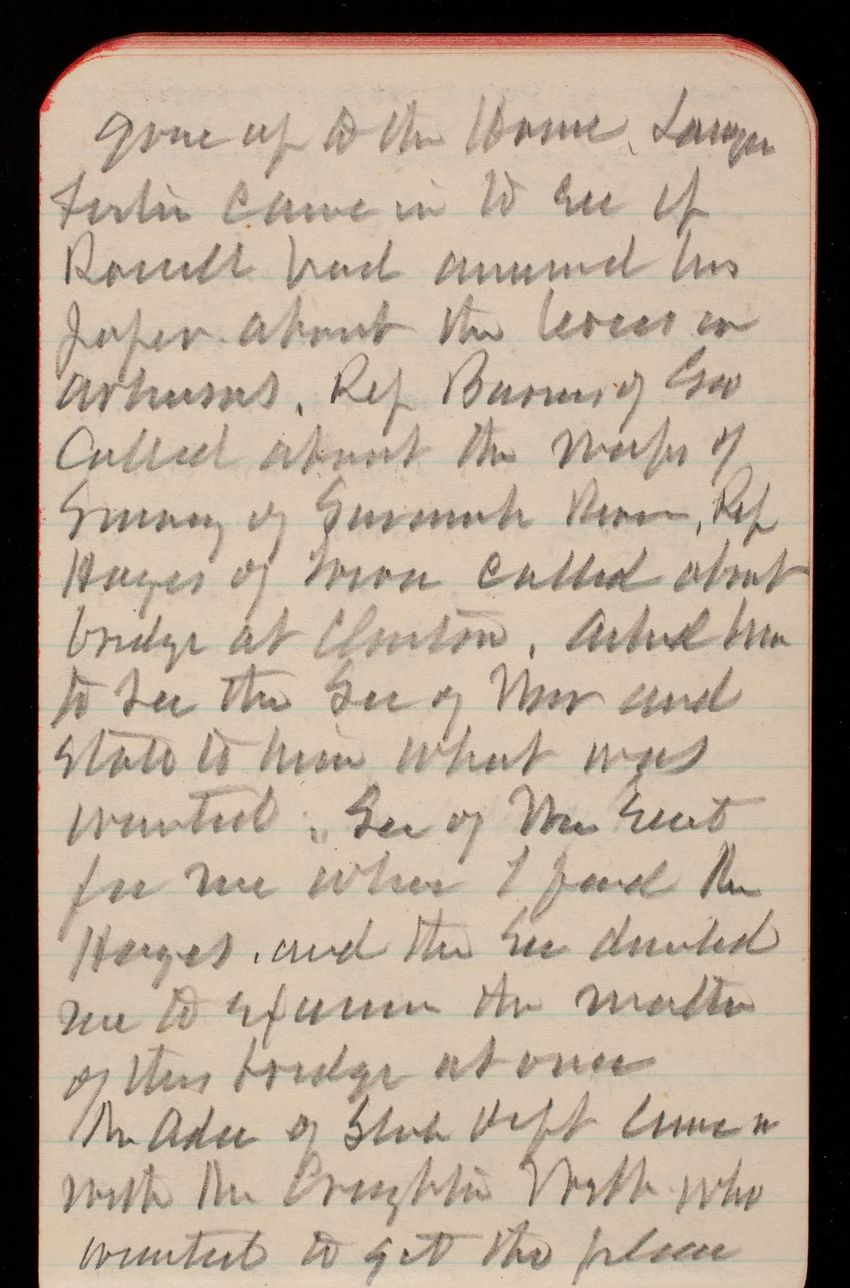 gone up to the House. Lawyer
came in to see if
Rowell had answered his
paper about the levees in
Arkansas. Rep Barnes of Geo
Called about the maps of
Survey of Savannah River. Rep
Hayes of Iowa called about
bridge at Clinton. Asked him
to see the Sec of War and
state to him what was
wanted. Sec of War sent
for me when I found Mr
Hayes. and the Sec directed
me to examine the matter
of this bridge at once
Mr Adee of State Dept came in
with Mr Creighton Webb who
wanted to get the place